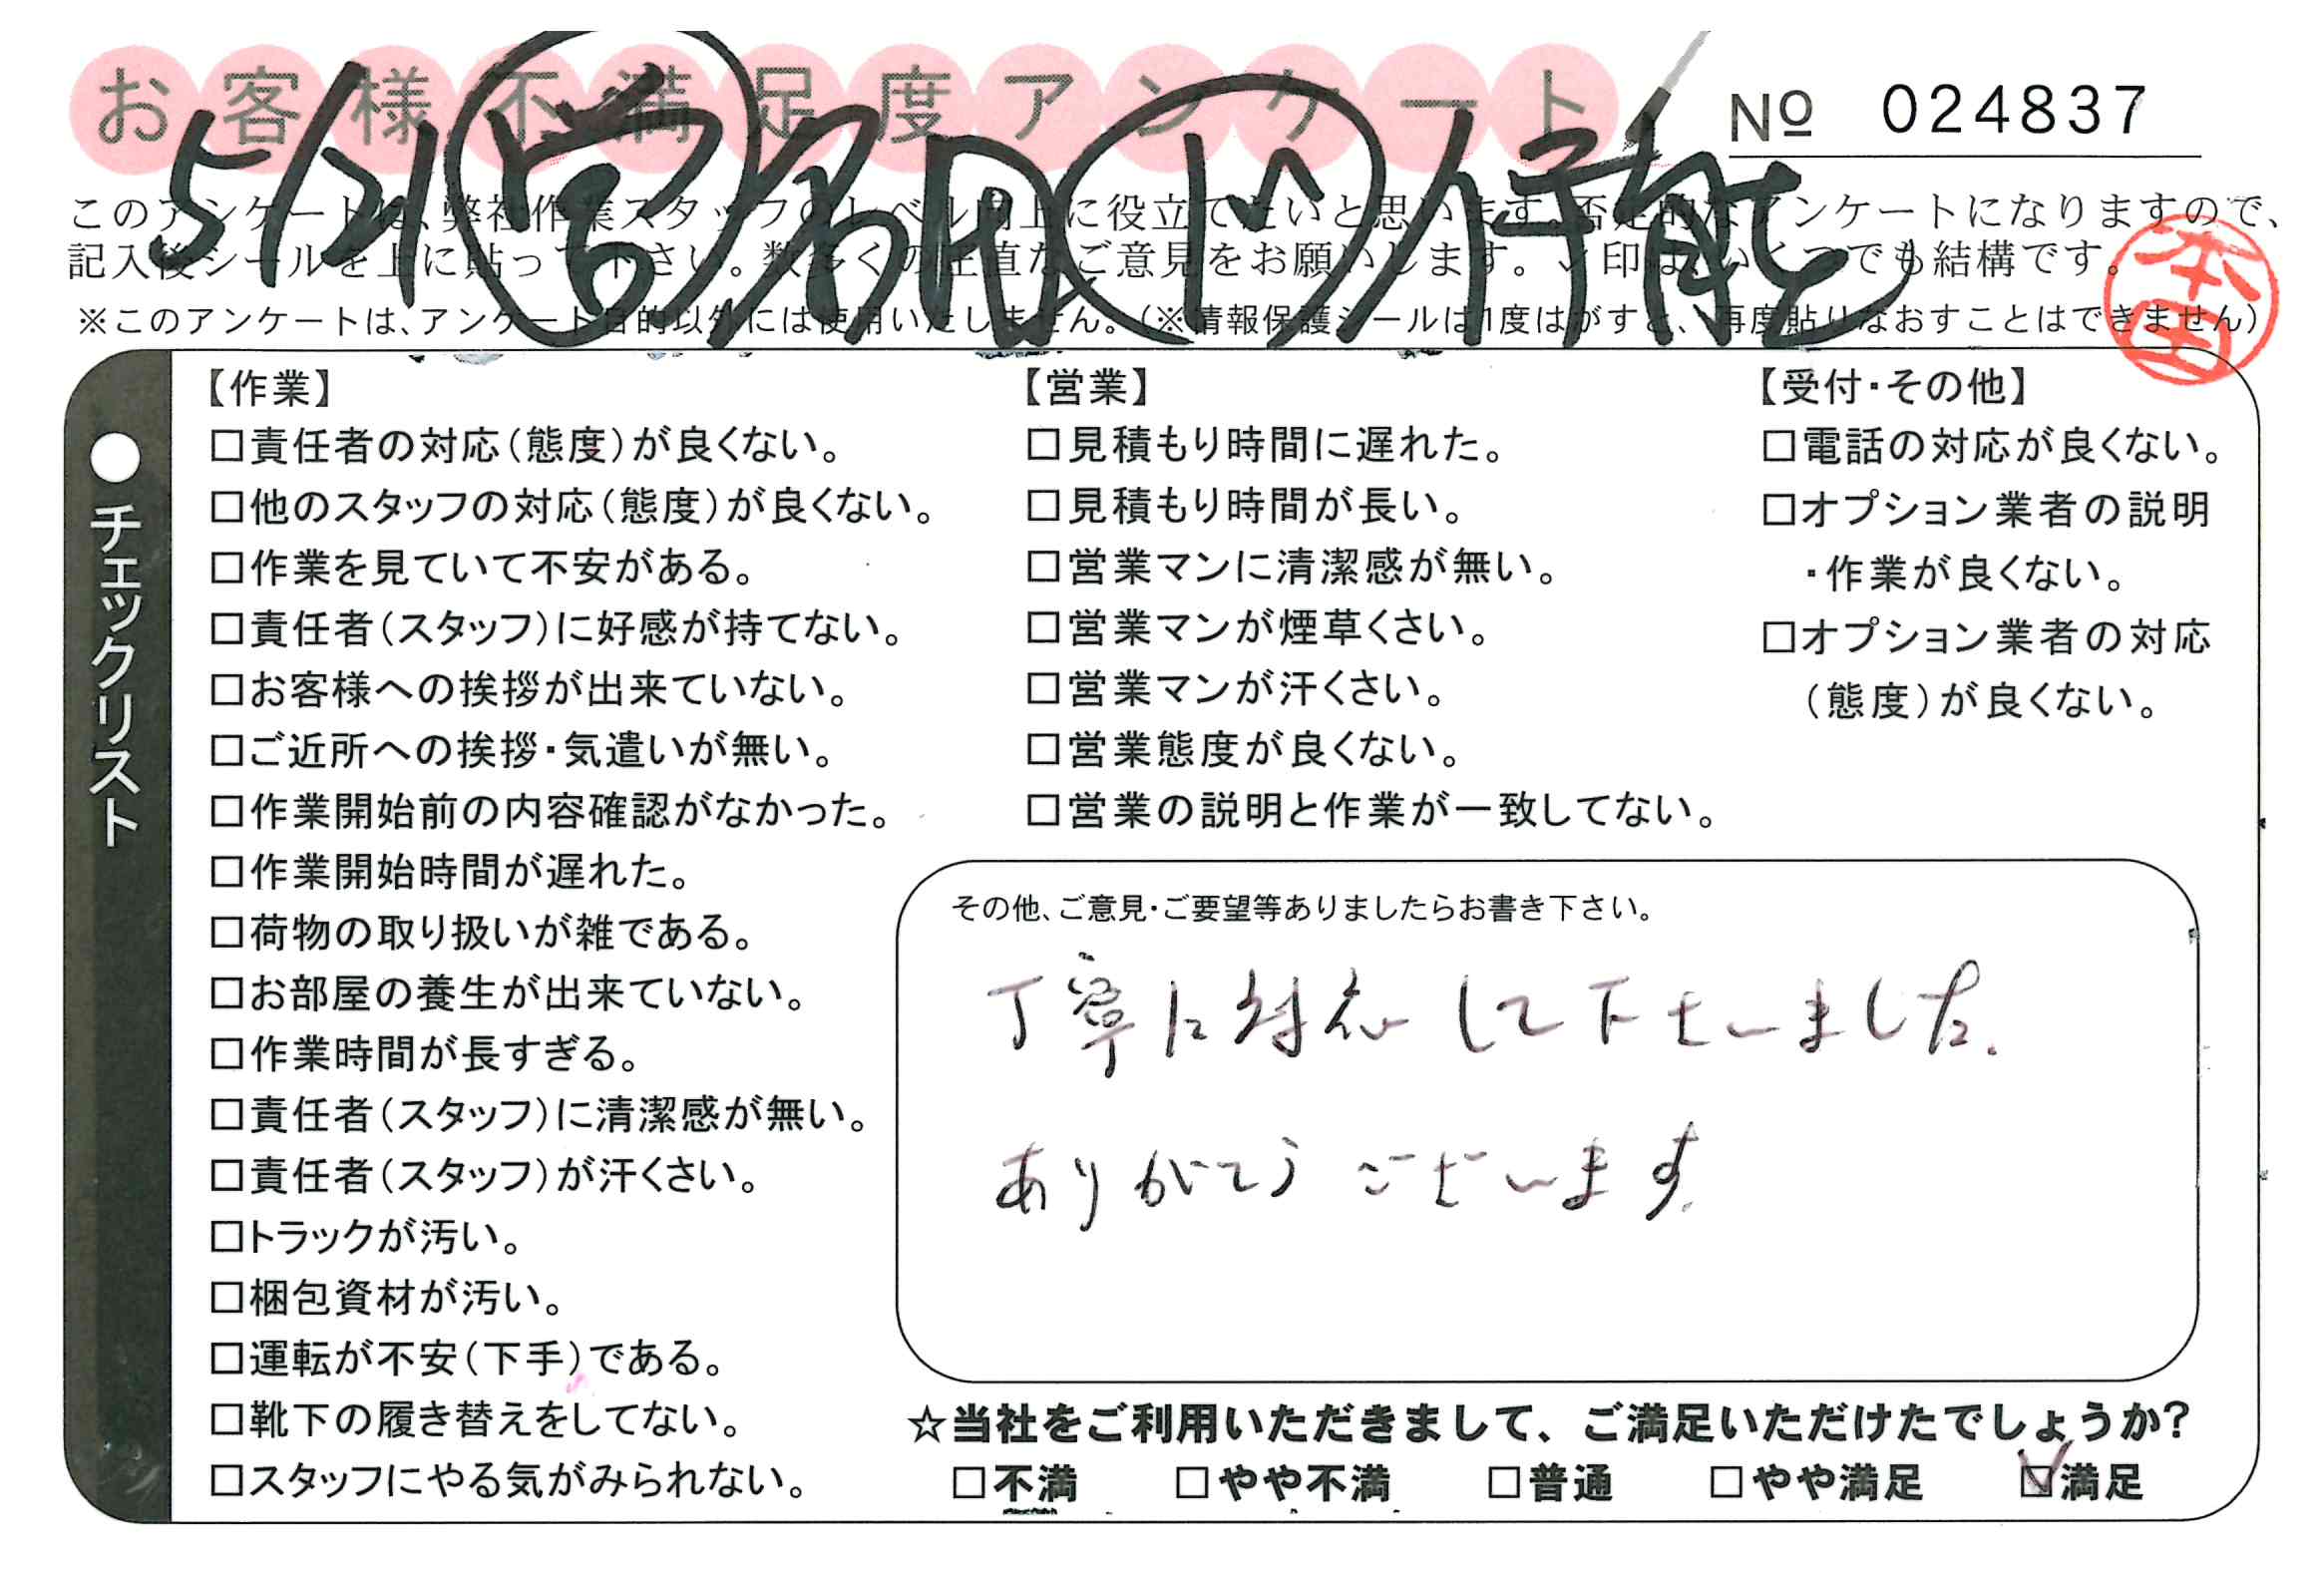 お客様不満足度アンケート
№ 024837
5/21
このアンケートは、弊社作業スタッフのレベル向上に役立てたいと思います。否定的なアンケートになりますので、
記入後シールを上に貼って下さい。数多くの正直なご意見をお願いします。✓印はいくつでも結構です。
※このアンケートは、アンケート目的以外には使用いたしません。（※情報保護シールは1度はがすと、再度貼りなおすことはできません）
●チェックリスト
【作業】
□責任者の対応（態度）が良くない。
□他のスタッフの対応（態度）が良くない。
□作業を見ていて不安がある。
□責任者（スタッフ）に好感が持てない。
□お客様への挨拶が出来ていない。
□ご近所への挨拶・気遣いが無い。
□作業開始前の内容確認がなかった。
□作業開始時間が遅れた。
□荷物の取り扱いが雑である。
□お部屋の養生が出来ていない。
□作業時間が長すぎる。
□責任者（スタッフ）に清潔感が無い。
□責任者（スタッフ）が汗くさい。
□トラックが汚い。
□梱包資材が汚い。
□運転が不安（下手）である。
□靴下の履き替えをしてない。
□スタッフにやる気がみられない。
【営業】
□見積もり時間に遅れた。
□見積もり時間が長い。
□営業マンに清潔感が無い。
□営業マンが煙草くさい。
□営業マンが汗くさい。
□営業態度が良くない。
□営業の説明と作業が一致してない。
【受付・その他】
□電話の対応が良くない。
□オプション業者の説明
・作業が良くない。
□オプション業者の対応
（態度）が良くない。
その他、ご意見・ご要望等ありましたらお書き下さい。
丁寧に対応して下さいました。
ありがとうございます。
☆当社をご利用いただきまして、ご満足いただけたでしょうか？
□不満 □やや不満 □普通 □やや満足 ☑満足